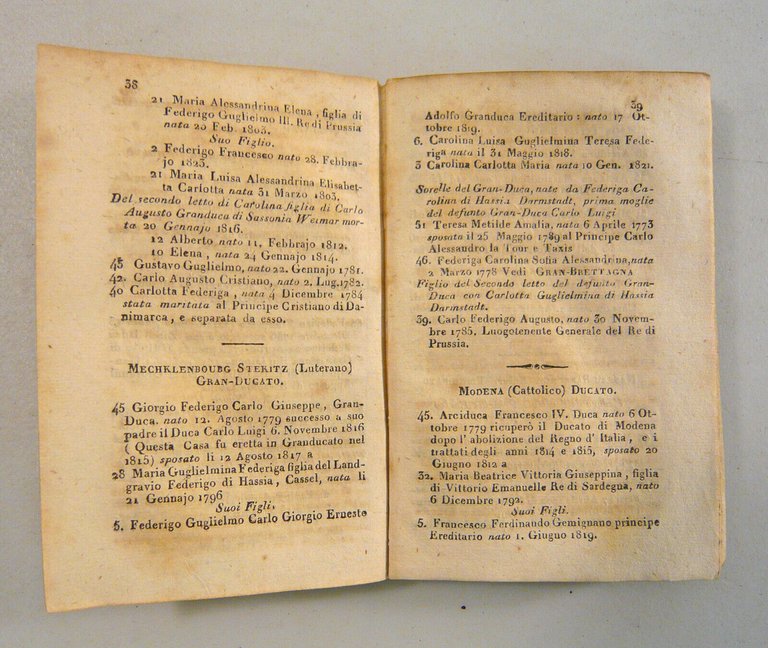 38
21 Maria Alessandrina Elena, figlia di
Federigo Guglielmo III. Re di Prussia
nata 20 Feb. 1803.
Suo Figlio.
2 Federigo Francesco nato 28. Febbra-
jo 1823.
21 Maria Luisa Alessandrina Elisabet-
ta Carlotta nata 31 Marzo 1803.
Del secondo letto di Carolina figlia di Carlo
Augusto Granduca di Sassonia Weimar mor-
ta 20 Gennajo 1816.
12 Alberto nato 11, Febbrajo 1812.
10 Elena, nata 24 Gennajo 1814.
45 Gustavo Guglielmo, nato 22. Gennajo 1781.
42. Carlo Augusto Cristiano, nato 2. Lug. 1782.
40 Carlotta Federiga, nata 4 Dicembre 1784
stata maritata al Principe Cristiano di Da-
nimarca, e separata da esso.
MECHKLENBOURG STERITZ (Luterano)
GRAN-DUCATO.
45 Giorgio Federigo Carlo Giuseppe, Gran-
Duca. nato 12. Agosto 1779 successo a suo
padre il Duca Carlo Luigi 6. Novembre 1816
(Questa Casa fu eretta in Granducato nel
1815) sposato li 12 Agosto 1817 a
28 Maria Guglielmina Federiga figlia del Land-
gravio Federigo di Hassia, Cassel, nata li
21 Gennajo 1796
Suoi Figli.
5. Federigo Guglielmo Carlo Giorgio Ernesto
39
Adolfo Granduca Ereditario: nato 17 Ot-
tobre 1819.
6. Carolina Luisa Guglielmina Teresa Fede-
riga nata il 31 Maggio 1818.
3 Carolina Carlotta Maria nata 10 Gen. 1821.
Sorelle del Gran-Duca, nate da Federiga Ca-
rolina di Hassia Darmstadt, prima moglie
del defunto Gran-Duca Carlo Luigi
51 Teresa Metilde Amalia, nata 6 Aprile 1773
sposata il 25 Maggio 1789 al Principe Carlo
Alessandro la Tour e Taxis
46. Federiga Carolina Sofia Alessandrina, nata
2 Marzo 1778 Vedi GRAN-BRETTAGNA
Figlio del Secondo letto del defunto Gran-
Duca con Carlotta Guglielmina di Hassia
Darmstadt.
39. Carlo Federigo Augusto, nato 30 Novem-
bre 1785. Luogotenente Generale del Re di
Prussia.
MODENA (Cattolico) DUCATO.
45. Arciduca Francesco IV. Duca nato 6 Ot-
tobre 1779 ricuperò il Ducato di Modena
dopo l'abolizione del Regno d'Italia, e i
trattati degli anni 1814 e 1815, sposato 20
Giugno 1812 a
32. Maria Beatrice Vittoria Giuseppina, figlia
di Vittorio Emanuelle Re di Sardegna, nato
6 Dicembre 1792.
Suoi Figli.
5. Francesco Ferdinando Gemignano principe
Ereditario nato 1. Giugno 1819.